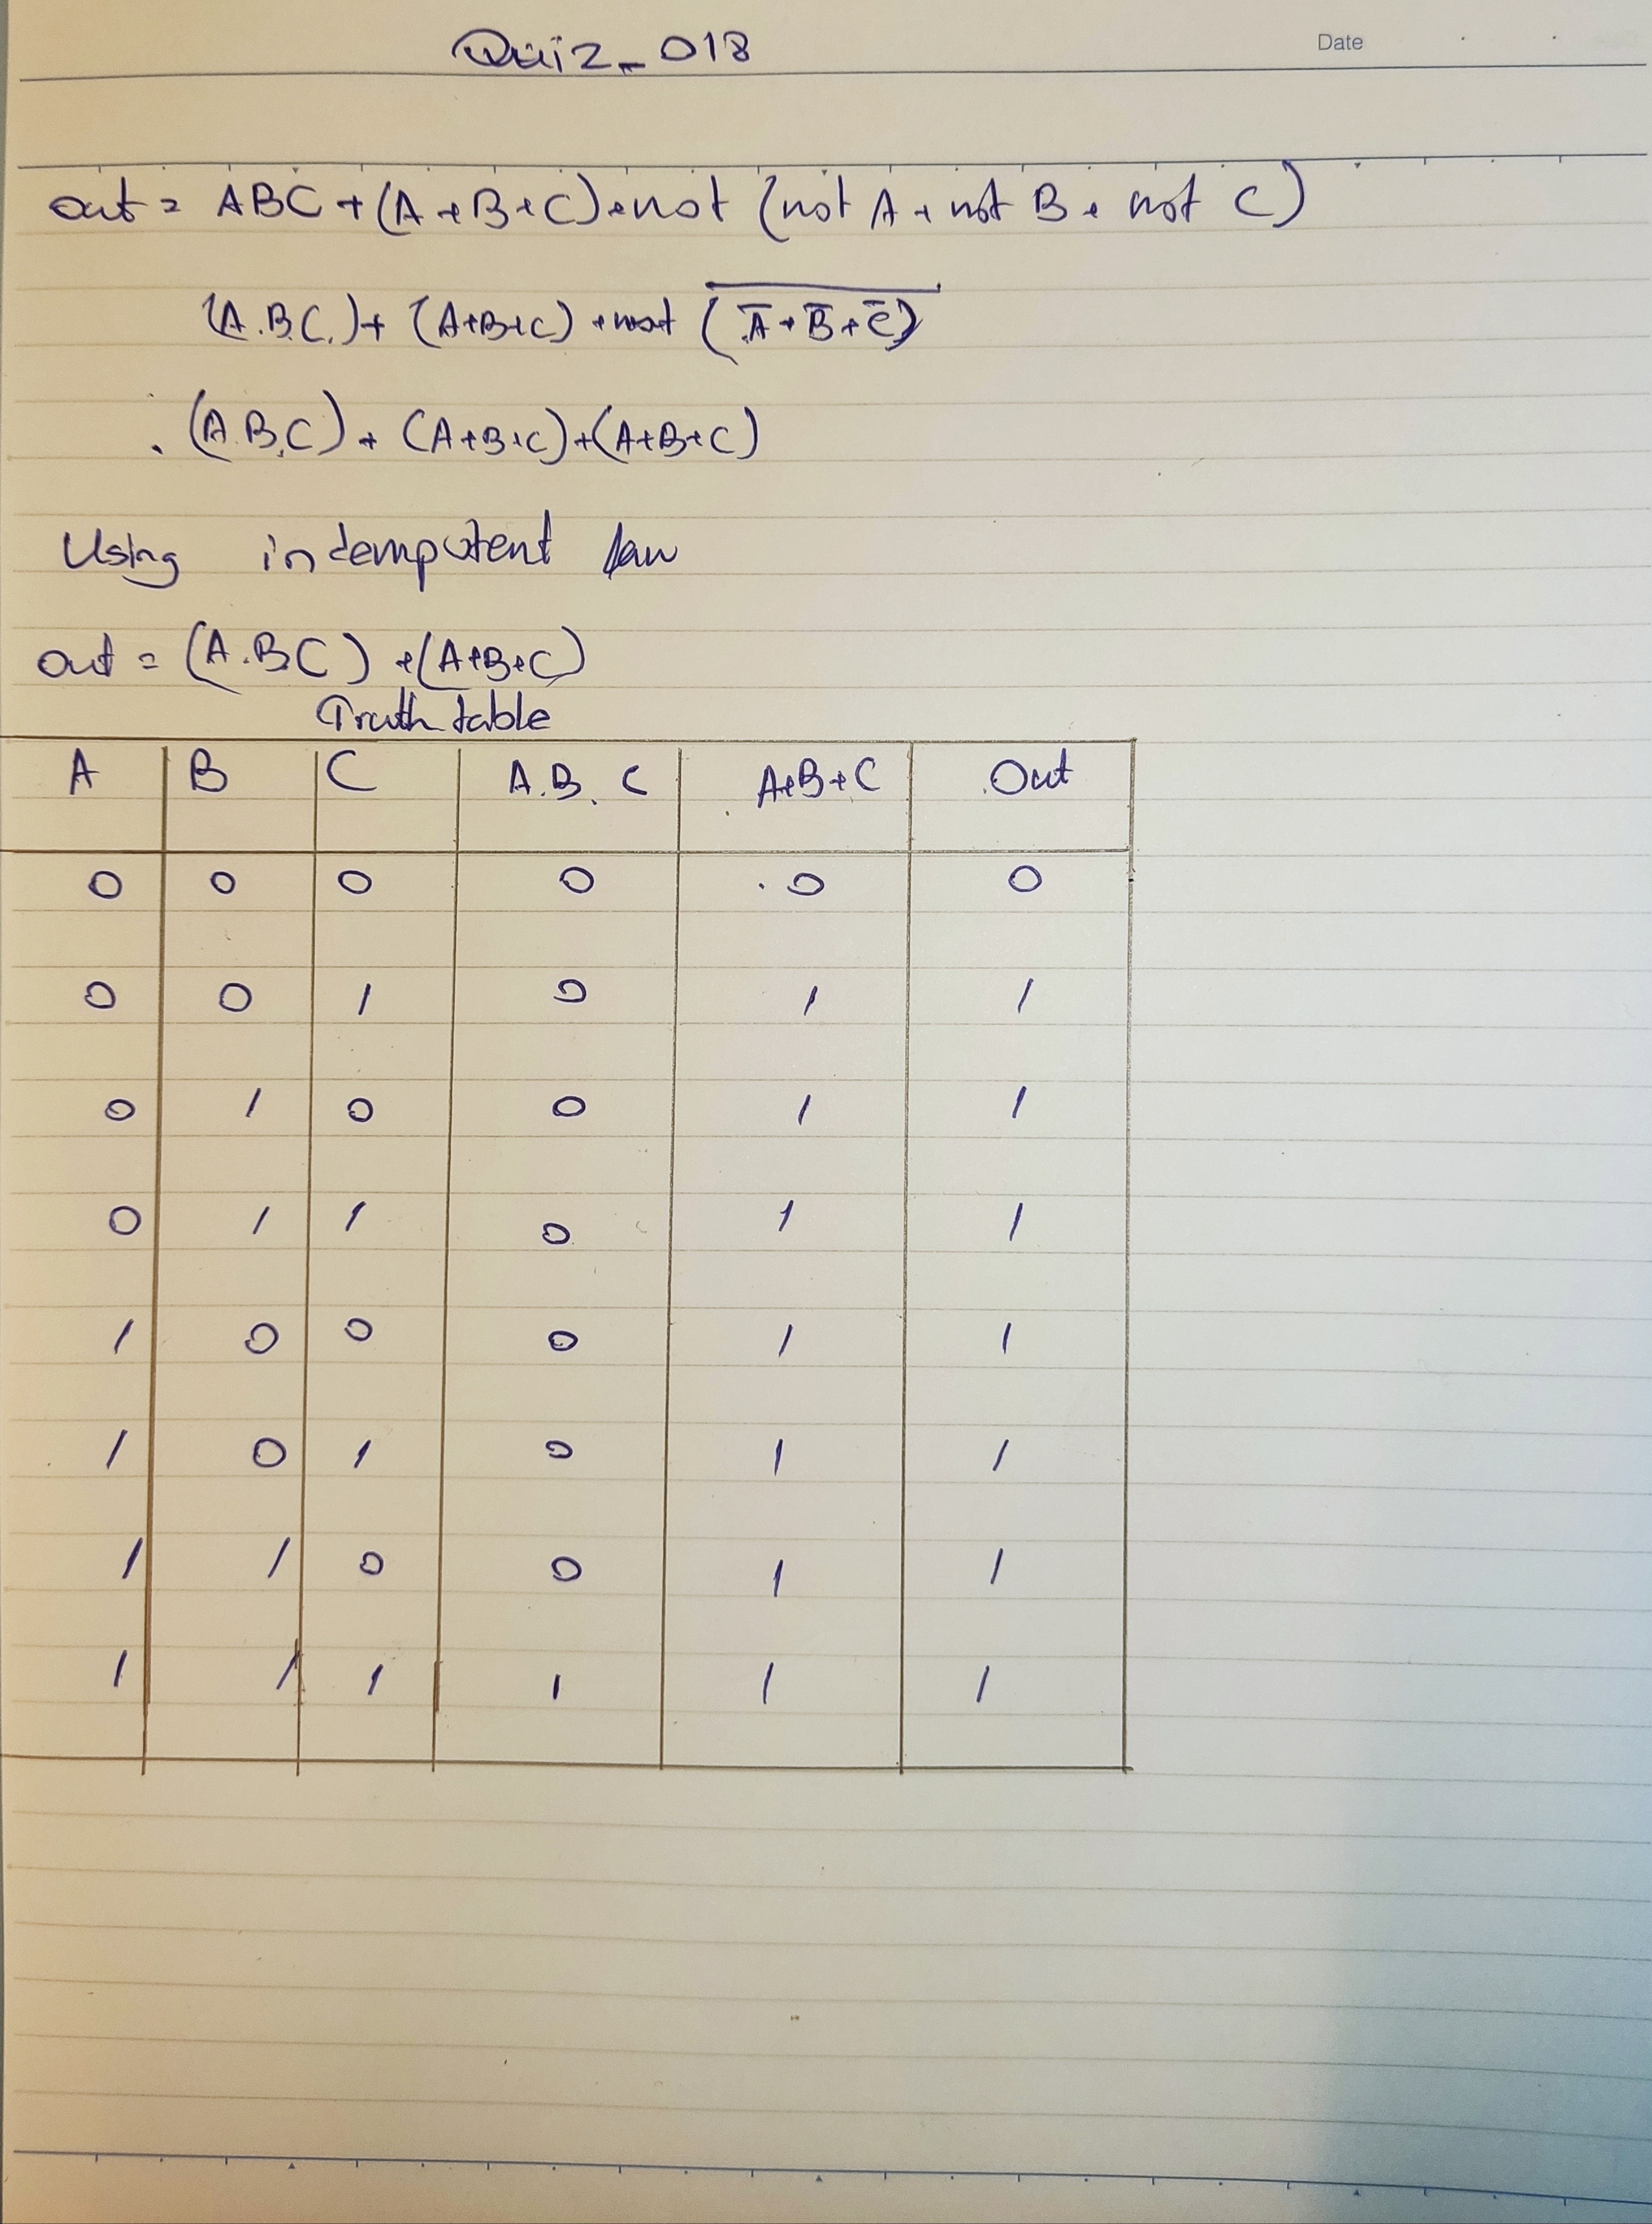 Quiz_018
Date
out = ABC + (A + B + C) + not (not A + not B + not C)
(A.B.C.) + (A+B+C) + not (A̅ + B̅ + C̅)
(A.B.C) + (A+B+C) + (A+B+C)
Using indempotent law
out = (A.B.C) + (A+B+C)
Truth table
A B C A.B.C A+B+C Out
0 0 0 0 0 0
0 0 1 0 1 1
0 1 0 0 1 1
0 1 1 0 1 1
1 0 0 0 1 1
1 0 1 0 1 1
1 1 0 0 1 1
1 1 1 1 1 1